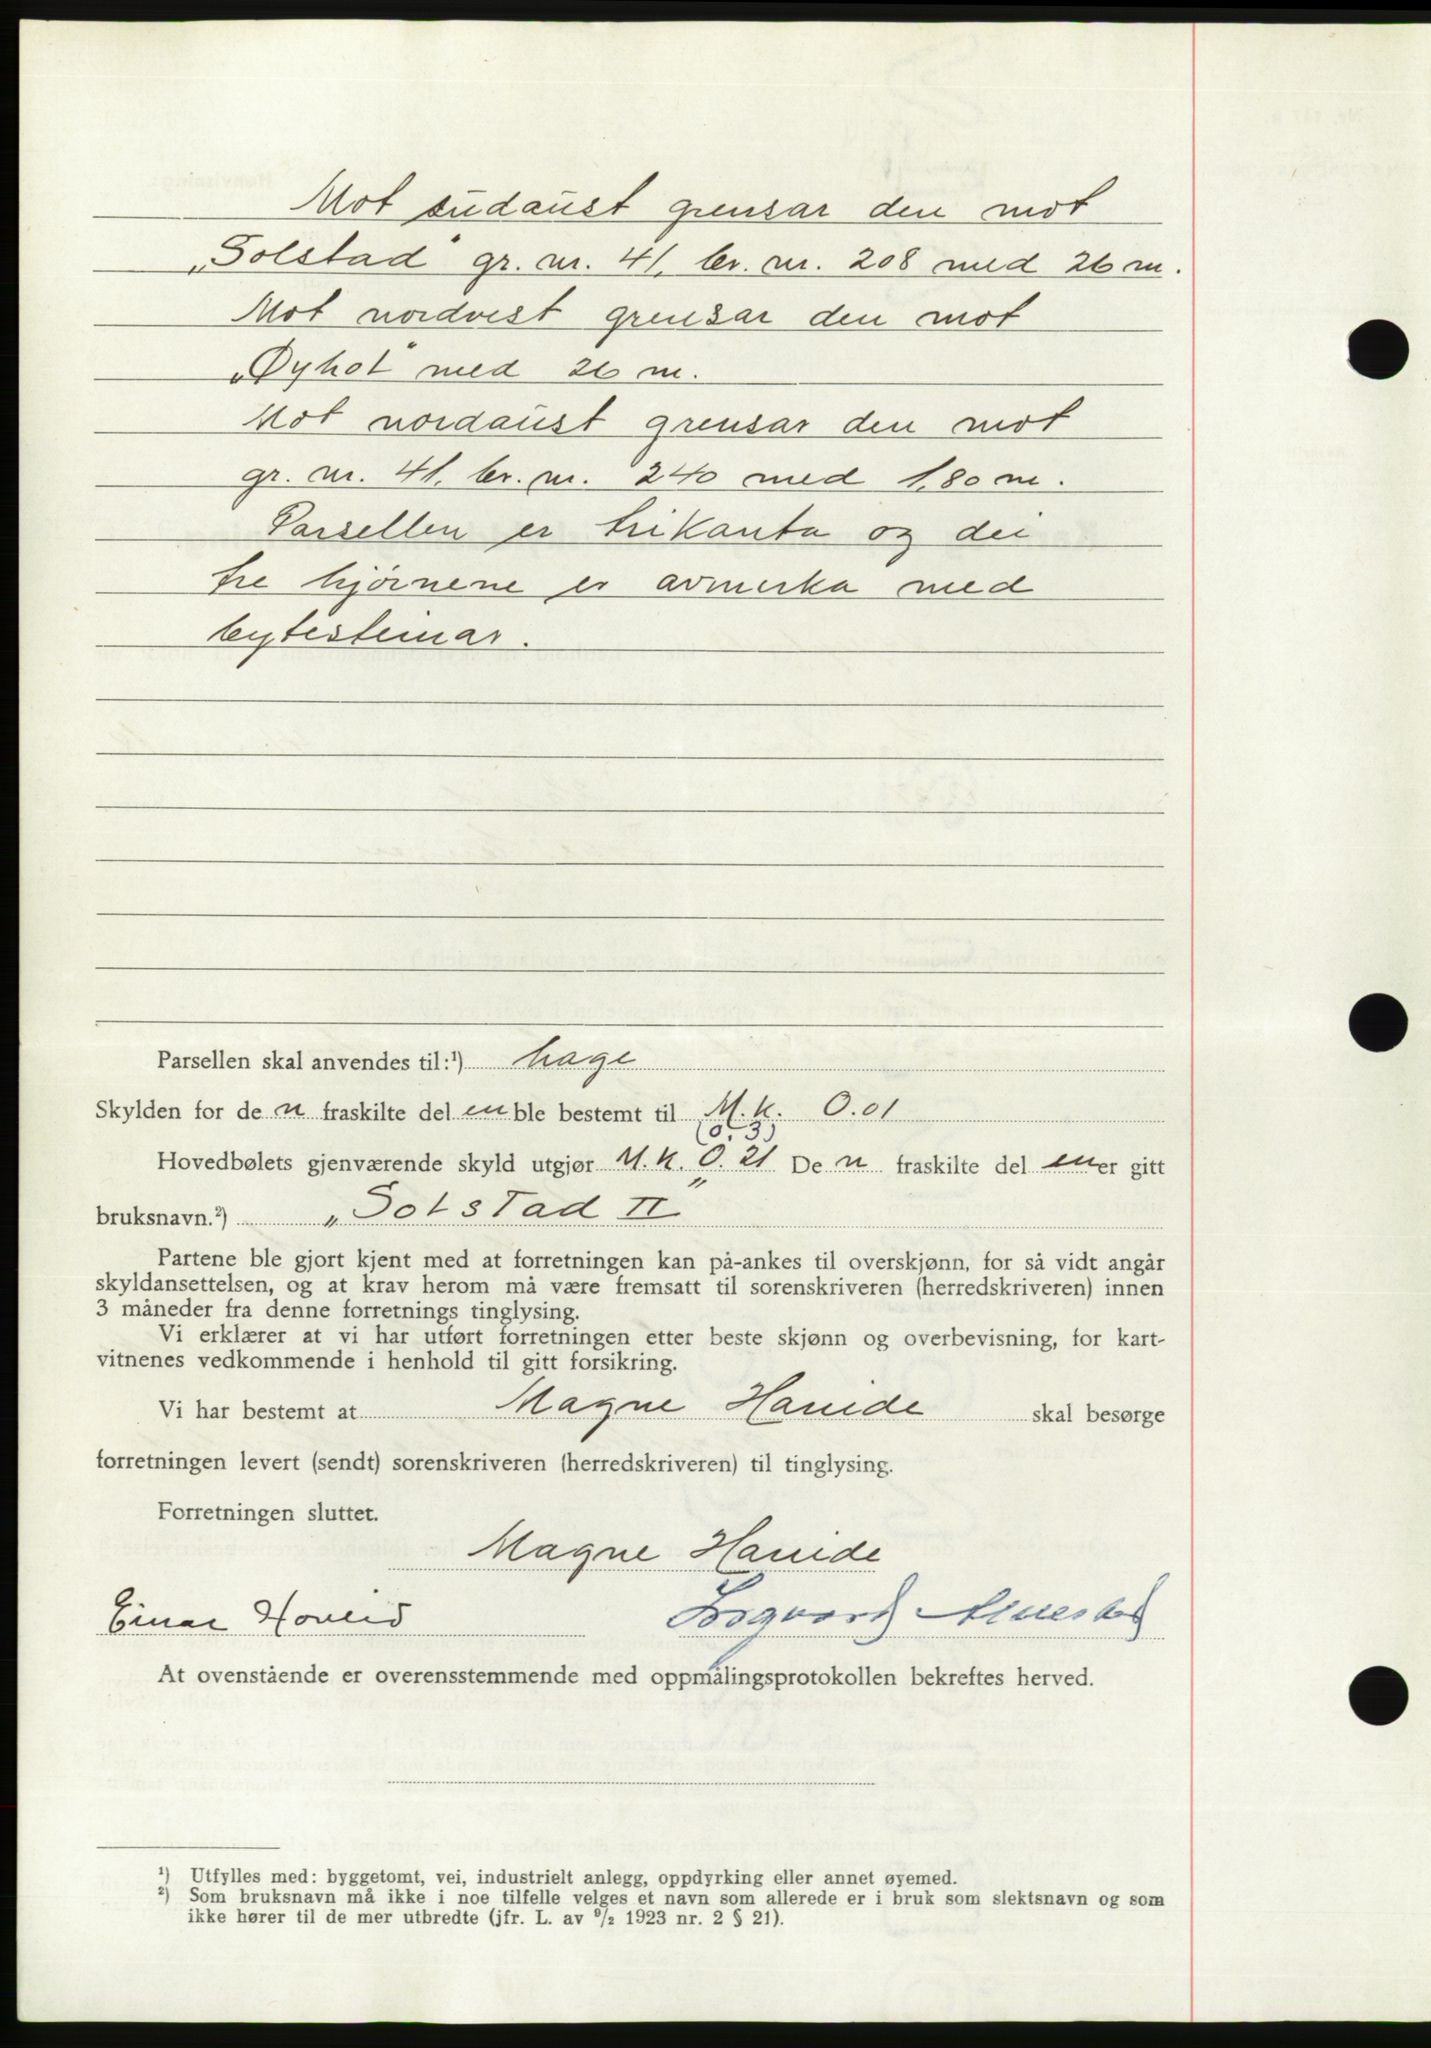 Mot sudaust grensar den mot
„Solstad“ gr. nr. 41, br. nr. 208 med 26 m.
Mot nordvest grensar den mot
„Øyhot“ med 26 m.
Mot nordaust grensar den mot
gr. nr. 41, br. nr. 240 med 1,80 m.
Parsellen er trikanta og dei
tre hjørnene er avmerka med
bytesteinar.
Parsellen skal anvendes til:¹) hage
Skylden for de n fraskilte del en ble bestemt til M.k. 0.01
(0,3)
Hovedbølets gjenværende skyld utgjør M.k. 0.21 De n fraskilte del en er gitt
bruksnavn.²) „Solstad II“
Partene ble gjort kjent med at forretningen kan på-ankes til overskjønn, for så vidt angår
skyldansettelsen, og at krav herom må være fremsatt til sorenskriveren (herredskriveren) innen
3 måneder fra denne forretnings tinglysing.
Vi erklærer at vi har utført forretningen etter beste skjønn og overbevisning, for kart-
vitnenes vedkommende i henhold til gitt forsikring.
Vi har bestemt at Magne Hareide skal besørge
forretningen levert (sendt) sorenskriveren (herredskriveren) til tinglysing.
Forretningen sluttet.
Magne Hareide
Einar Hovlid
At ovenstående er overensstemmende med oppmålingsprotokollen bekreftes herved.
¹) Utfylles med: byggetomt, vei, industrielt anlegg, oppdyrking eller annet øyemed.
²) Som bruksnavn må ikke i noe tilfelle velges et navn som allerede er i bruk som slektsnavn og som
ikke hører til de mer utbredte (jfr. L. av 9/2 1923 nr. 2 § 21).